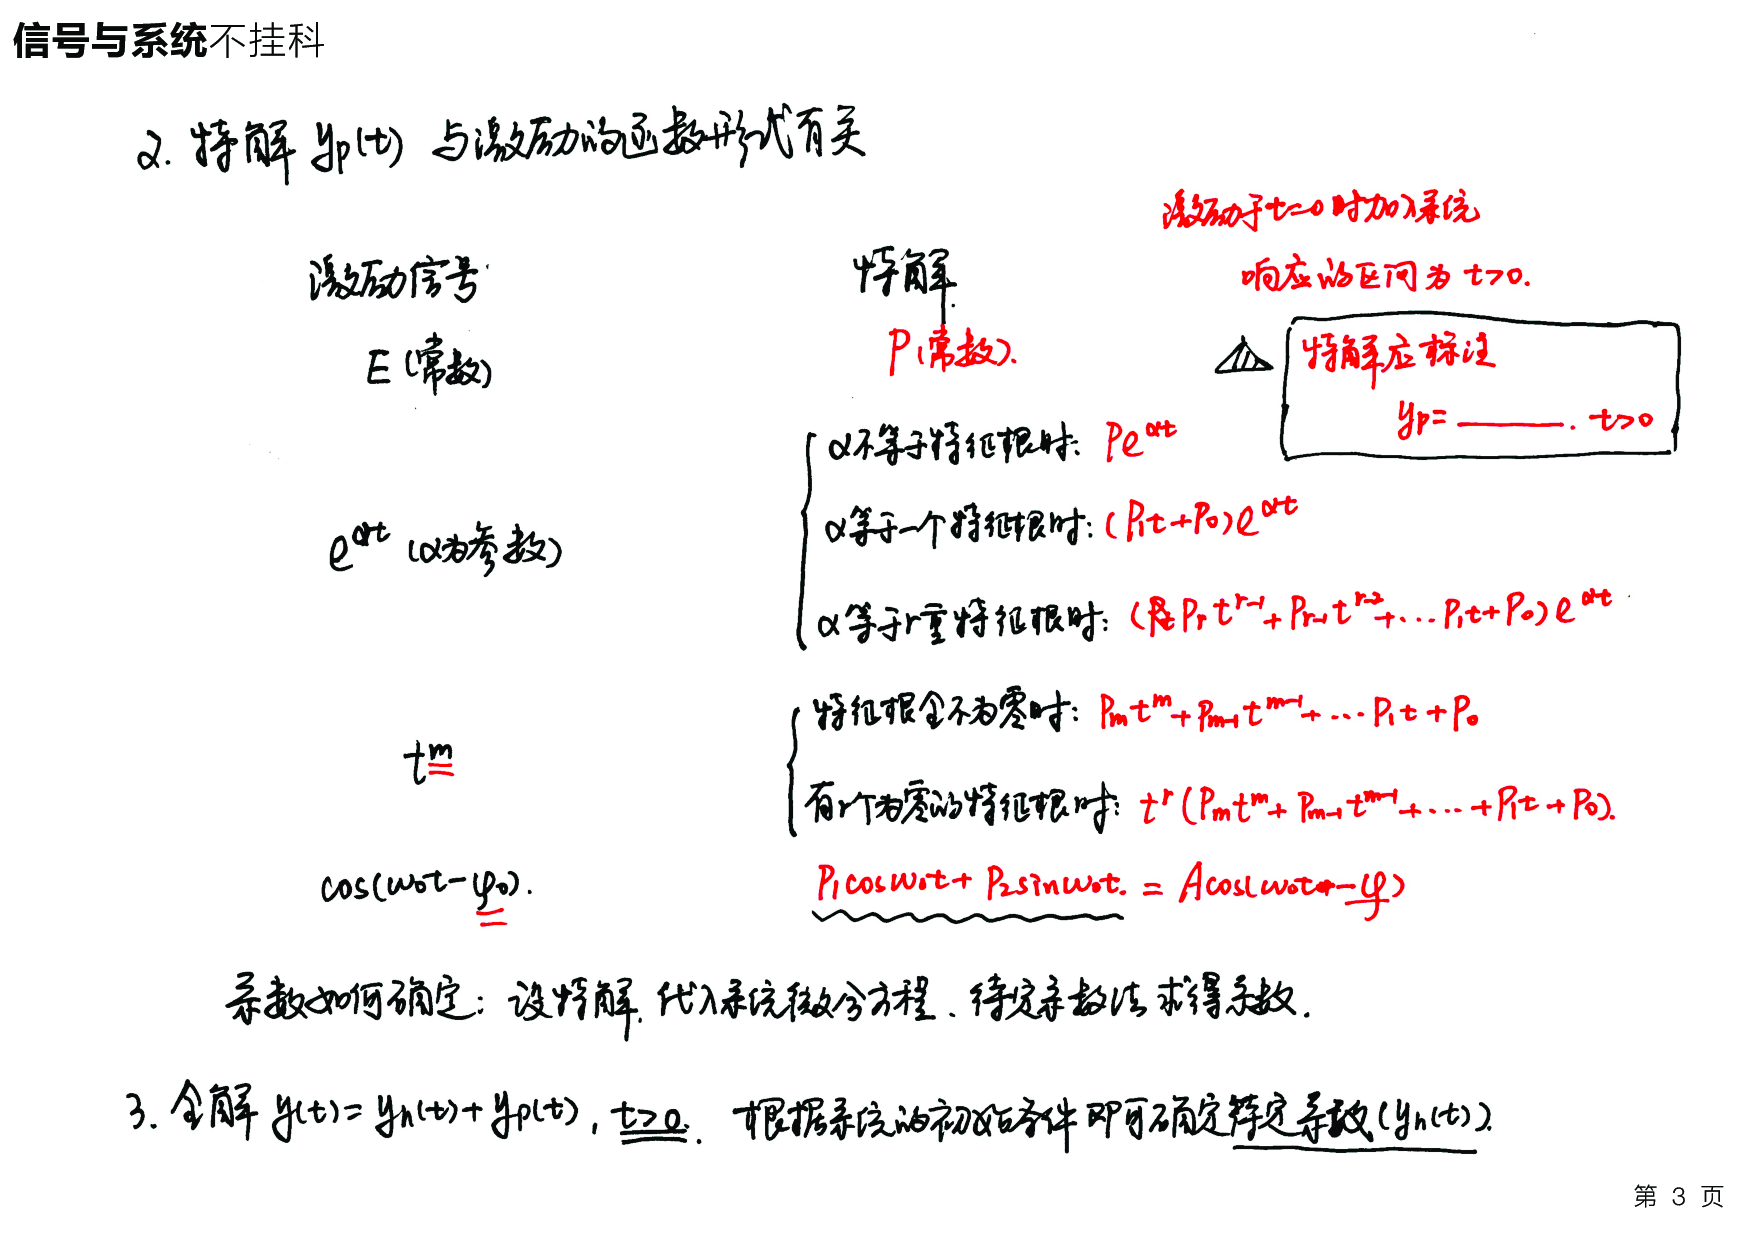 信号与系统不挂科
2. 特解 yp(t) 与激励的函数形式有关
激励于t=0时加入系统
响应的区间为 t>0.
激励信号 特解
E (常数) P(常数).
特解应标注
yp= ______. t>0
e^{αt} (α为参数)
α不等于特征根时: Pe^{αt}
α等于一个特征根时: (P₁t+P₀)e^{αt}
α等于r重特征根时: (Pᵣt^{r-1}+Pᵣ₋₁t^{r-2}+...P₁t+P₀)e^{αt}
t^m
特征根全不为零时: Pₘt^m+Pₘ₋₁t^{m-1}+...P₁t+P₀
有r个为零的特征根时: t^r(Pₘt^m+Pₘ₋₁t^{m-1}+...+P₁t+P₀).
cos(ω₀t-φ₀). P₁cosω₀t+P₂sinω₀t. = Acos(ω₀t-φ)
系数如何确定: 设特解, 代入系统微分方程、待定系数法求得系数.
3. 全解 y(t)=yₕ(t)+yp(t), t>0. 根据系统的初始条件即可确定待定系数(yₕ(t)).
第 3 页